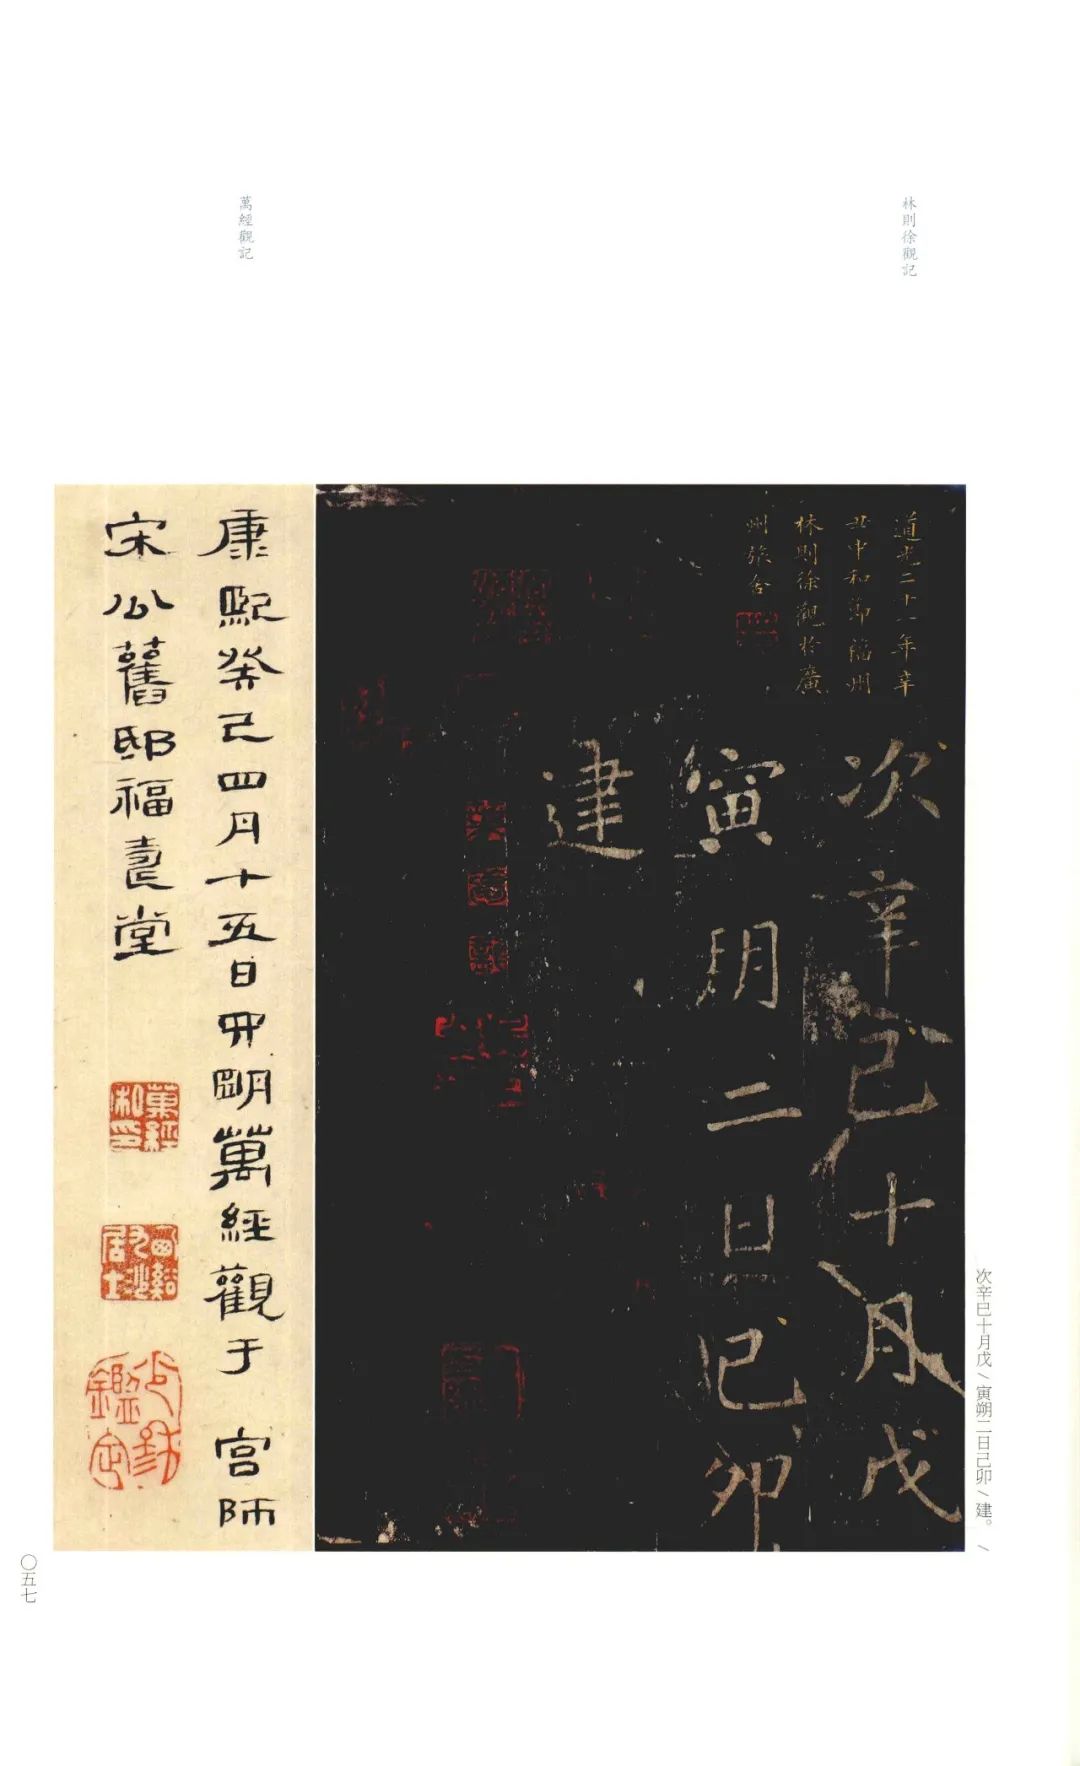 林則徐觀記
萬經觀記
道光二十一年辛
丑中和節福州
林則徐觀於廣
州張舍
次辛巳十月戊
寅朔二日己卯
建
次辛巳十月戊/寅朔二日己卯/建。/
康熙癸巳四月十五日四明萬經觀于宮師
宋公舊邸福壽堂
萬經私印
〇五七